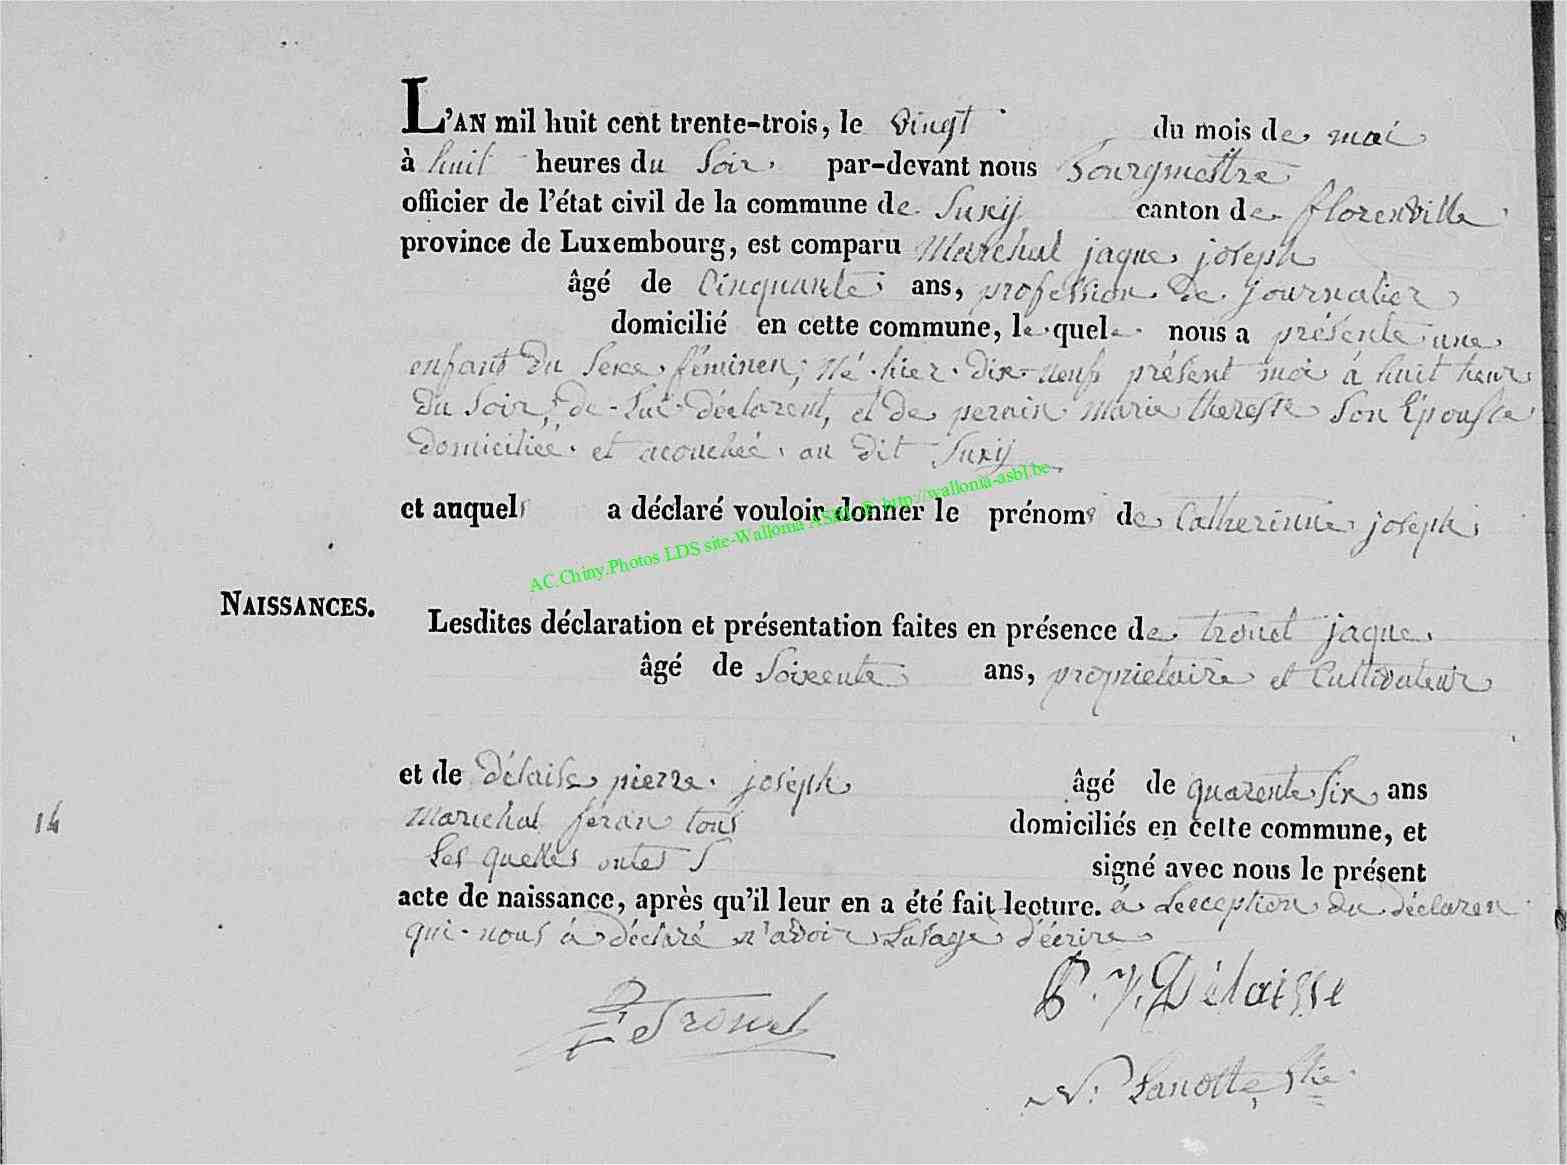 L'AN mil huit cent trente-trois, le vingt du mois de mai
à huit heures du soir par-devant nous Bourgmestre
officier de l'état civil de la commune de Suxÿ canton de florenville
province de Luxembourg, est comparu Marechal jaque joseph
âgé de Cinquante ans, profession de journalier
domicilié en cette commune, le quel nous a présenté une
enfant du sexe féminen; Né hier dix-neuf présent moi à huit heur
du soir, de Lui déclarent, et de perain marie theresse son Epousse
domiciliée et acouchée au dit Suxÿ
et auquel a déclaré vouloir donner le prénoms de Catherinne joseph
AC.Chiny.Photos LDS site-Wallonia ASBL © http://wallonia-asbl.be
NAISSANCES.
Lesdites déclaration et présentation faites en présence de trouet jaque
âgé de Soixente ans, proprietaire et Cultivateur
et de Délaisse pierre joseph âgé de quarente six ans
14
Marechal tous domiciliés en cette commune, et
Les quelles signé avec nous le présent
acte de naissance, après qu'il leur en a été fait lecture. à Lexception du déclaren
qui nous à déclaré n'avoir Lusage d'écrire
Trouet
P. J. Délaisse
N. Lanotte